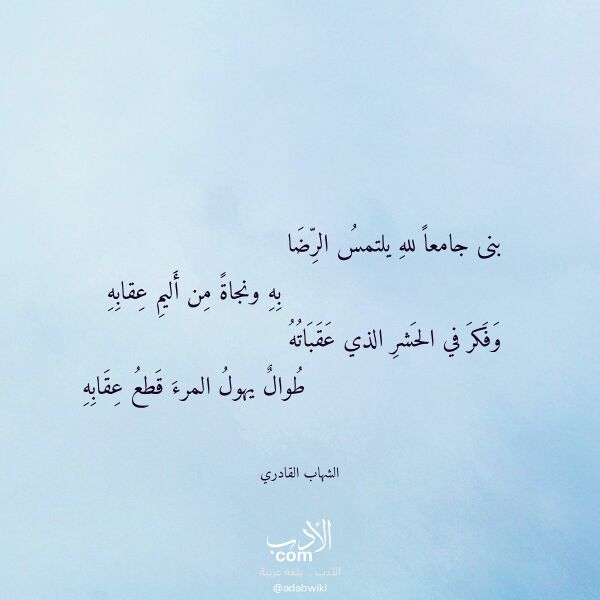 بنى جامعاً للهِ يلتمسُ الرِّضَا
بِهِ ونجاةً مِن أَليمِ عِقابِهِ
وَفَكرَ في الحَشرِ الذي عَقَبَاتُهُ
طُوالٌ يهولُ المرءَ قَطعُ عِقَابِهِ
الشهاب القادري
الأدب
com
الأدب .. بلغة عربية
@adabwiki